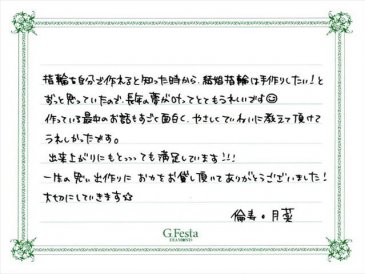 指輪を自分で作れると知った時から、結婚指輪は手作りしたい！と
ずっと思っていたので、長年の夢が叶ってとてもうれしいです☺
作っている最中のお話もすごく面白く、やさしくていねいに教えて頂けて
うれしかったです。
出来上がりにもとっっっても満足しています！！！
一生の思い出作りに お力をお貸し頂いてありがとうございました！
大切にしていきます☆
倫寿・月菜
G.Festa
DIAMOND